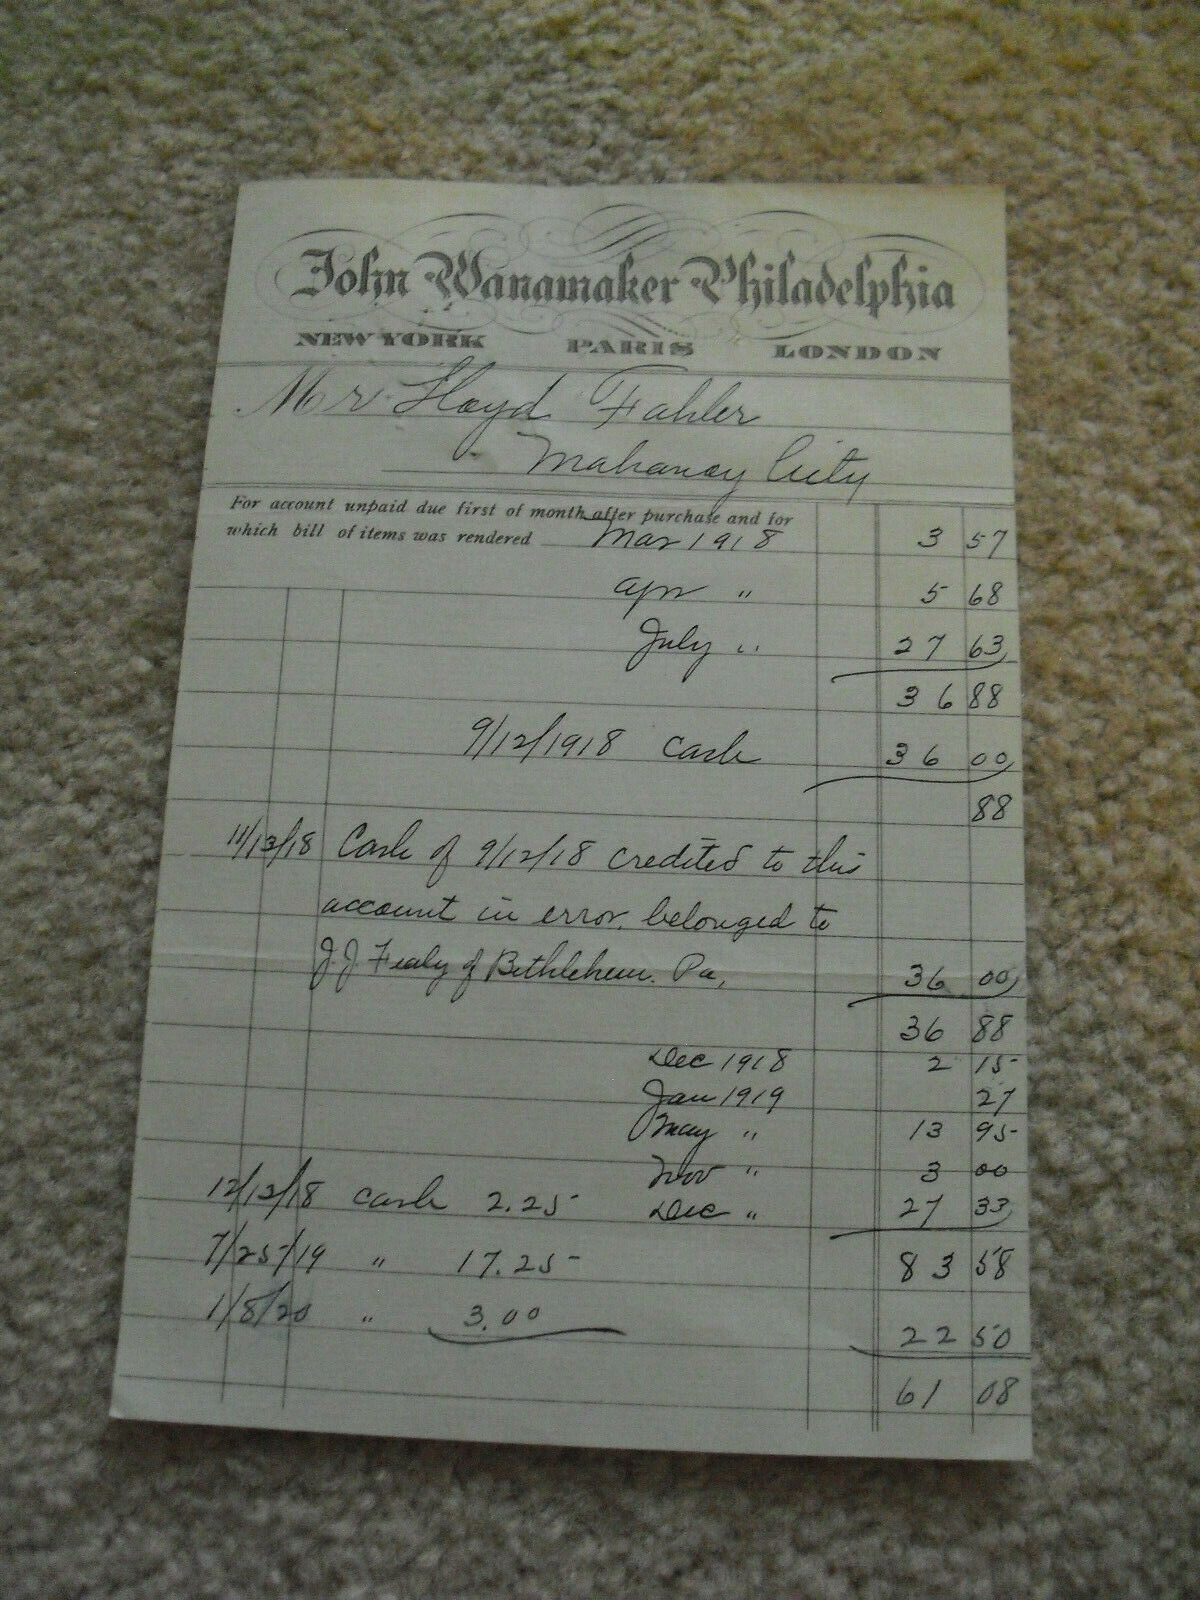 John Wanamaker Philadelphia
NEW YORK PARIS LONDON
Mr Lloyd Fahler
Mahanoy City
For account unpaid due first of month after purchase and for
which bill of items was rendered Mar 1918 3 57
Apr " 5 68
July " 27 63
36 88
9/12/1918 Cash 36 00
88
11/13/18 Cash of 9/12/18 credited to this
account in error. belonged to
J J Fealy of Bethlehem. Pa, 36 00
36 88
Dec 1918 2 15
Jan 1919 27
May " 13 95
Nov " 3 00
12/12/18 cash 2.25 Dec " 27 33
7/25/19 " 17.25 83 58
1/8/20 " 3.00 22 50
61 08